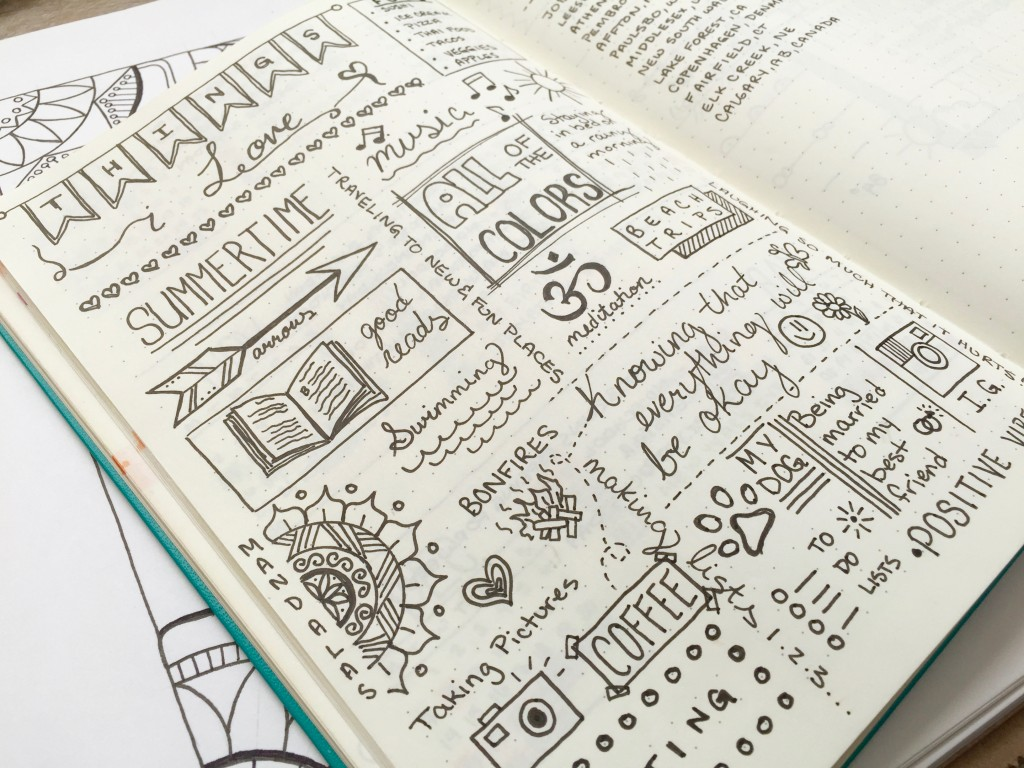 THINGS
i Love
ICE CREAM
PIZZA
THAI FOOD
TACOS
VEGGIES
APPLES
SUMMERTIME
music
TRAVELING TO NEW & FUN PLACES
ALL OF THE
COLORS
Staying
in bed on
a rainy
morning
BEACH
TRIPS
arrows
good
reads
ॐ
meditation
Swimming
Knowing that
everything will
be okay
MUCH THAT IT HURTS
I.G.
BONFIRES
making lists
1. 2. 3...
MY
DOG
Being
married
to my
best
friend
MANDALAS
Taking Pictures
COFFEE
TO
DO
LISTS
POSITIVE VIBES
TING
AFFTON,
MIDDLESEX,
NEW SOUTH
LAKE FOREST, CA
COPENHAGEN,
FAIRFIELD, CT
ELK CREEK, NE
CALGARY, AB, CANADA